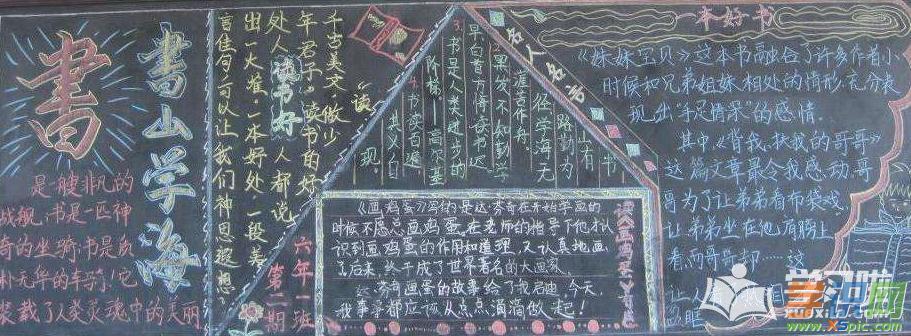 書
書山学海
是一艘非凡的
战舰,书是一匹神
奇的坐骑,书是质
朴无华的车驹,它
装载了人类灵魂中的美丽
读书好
千古美文,做少
年君子,读书的好
处人人都说
出一火准,一本好处,一段美
言佳句,可以让我们神思遐想.
六年一班
第二期
名人名言
书
山有
路勤为
径学海无
涯苦作舟
2.黑发不知勤学
早白首方悔读书迟
3.书是人类进步的
阶梯.——高尔基
4.书读百遍
其义自
现.
《画鸡蛋》写的是达·芬奇在开始学画的
时候不愿总画鸡蛋在老师的指导下他才认
识到画鸡蛋的作用和道理,又认真地画
了后来,终于成了世界著名的大画家.
达·芬奇画蛋的故事给了我启迪,今天,
我事事都应该从点点滴滴做起!
一本好书
《妹妹宝贝》这本书融合了许多作者小
时候和兄弟姐妹相处的情形,充分表
现出"手足情深"的感情.
其中,《背我、扶我的哥哥》
这篇文章最令我感动,哥
哥为了让弟弟看布袋戏,
让弟弟坐在他肩膀上
看,而哥哥却……这
让人
学习啦网
www.XSpic.com